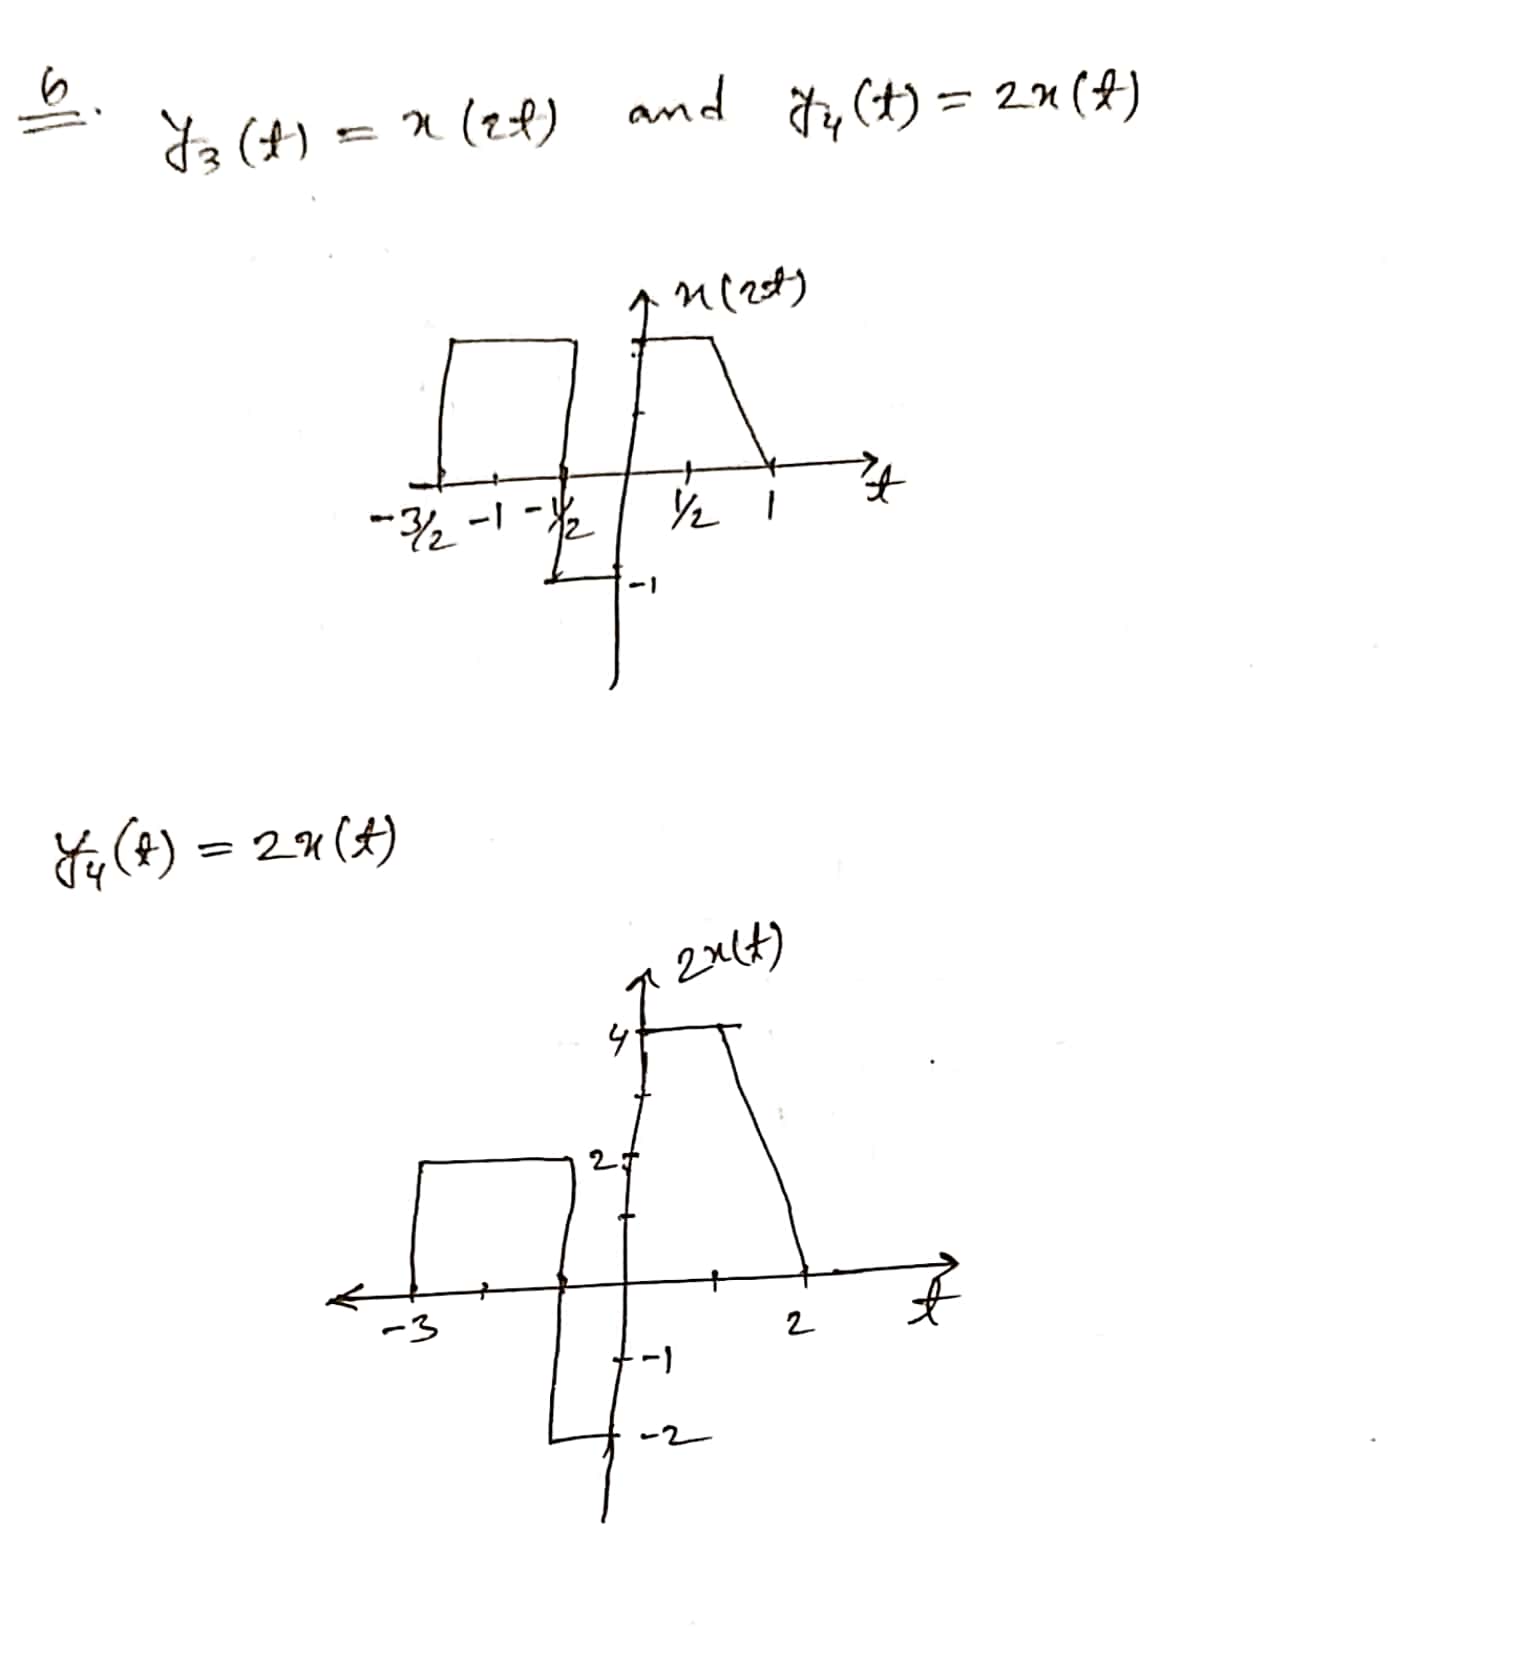 6. y₃(t) = x(2t) and y₄(t) = 2x(t)
x(2t)
t
-3/2 -1 -1/2 1/2 1
-1
y₄(t) = 2x(t)
2x(t)
4
2
-3 2 t
-1
-2